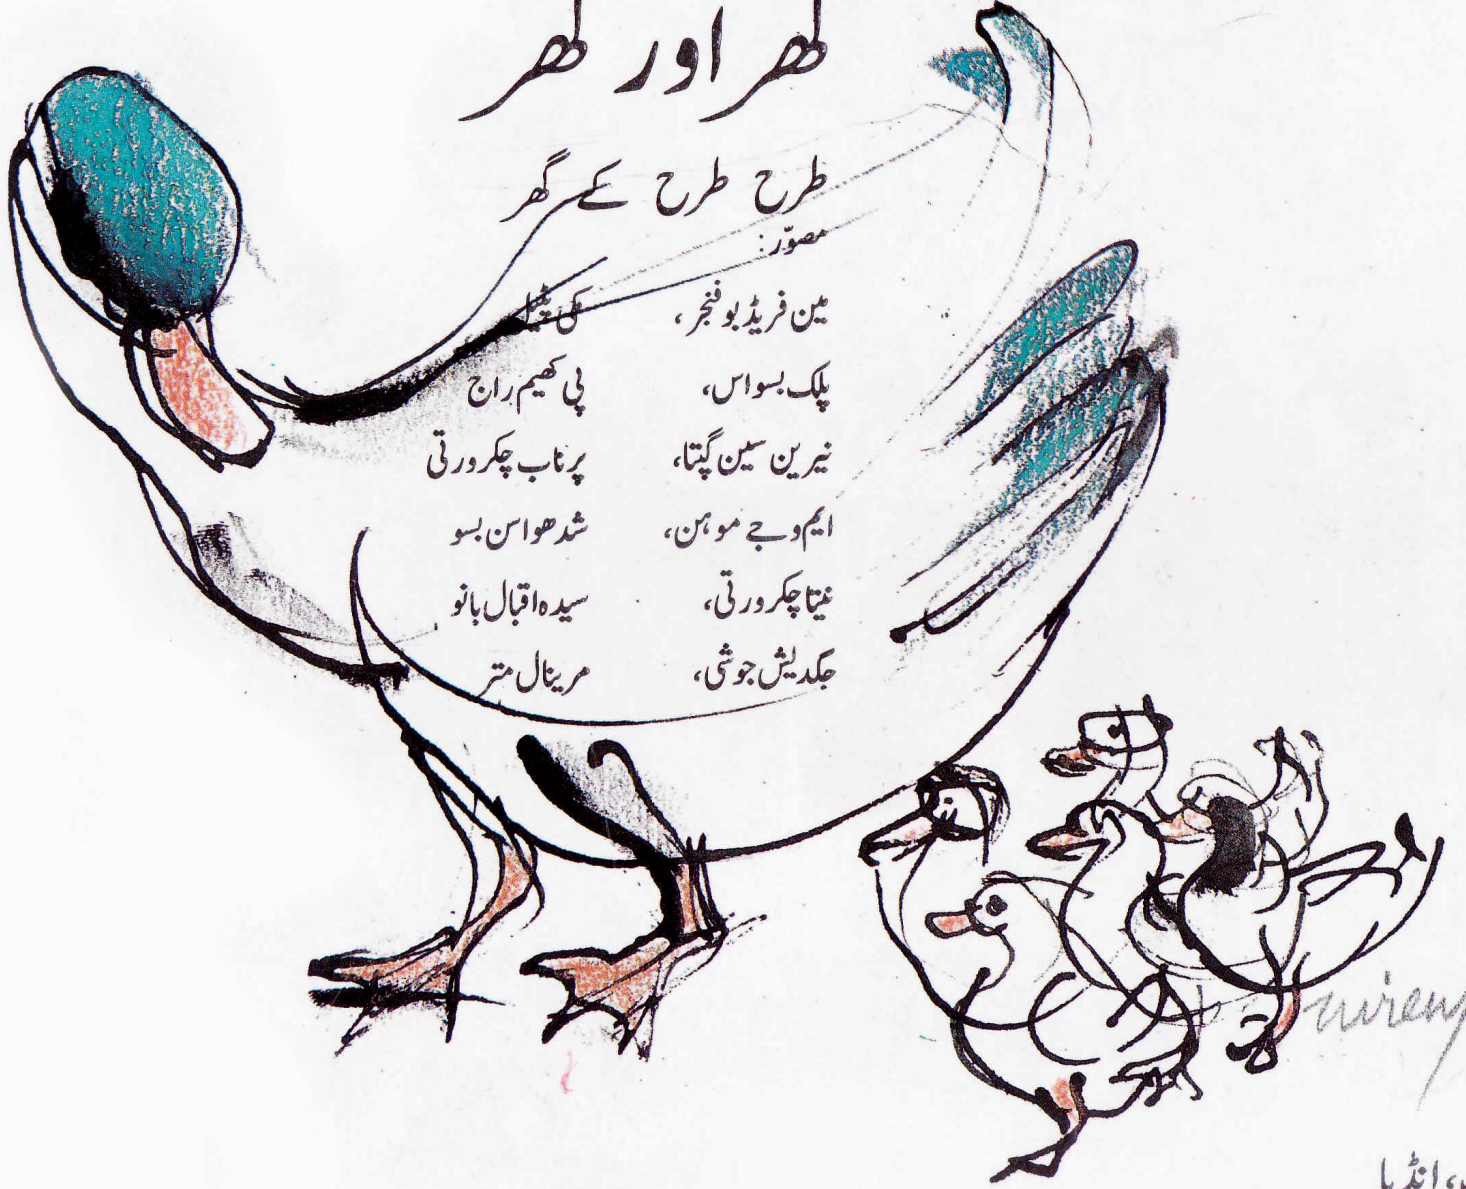 گھر اور گھر
طرح طرح کے گھر
مصوّر:
مین فریڈ بوفنجر، مکی پٹیل
پلک بسواس، پی کھیم راج
نیرین سین گپتا، پرناب چکرورتی
ایم وجے موہن، شدھواسن بسو
نیتا چکرورتی، سیدہ اقبال بانو
جگدیش جوشی، مرینال متر
niren
انڈیا